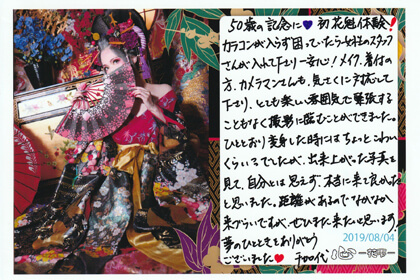 50歳の記念に♥初花魁体験!
カラコンが入らず困っていたら女性のスタッフ
さんが入れて下さり一安心!メイク、着付の
方、カメラマンさんも、気さくに対応して
下さり、とても楽しい雰囲気で緊張する
こともなく撮影に臨むことができました。
ひととおり変身した時にはちょっとこわい
くらいでしたが、出来上がった写真を
見て、自分とは思えず、本当に来て良かった
と思いました。距離があるのでなかなか
来づらいですが、ぜひまた来たいと思います
夢のひとときをありがとう
ございました♥ 千加代
2019/08/04
心 -花雫-